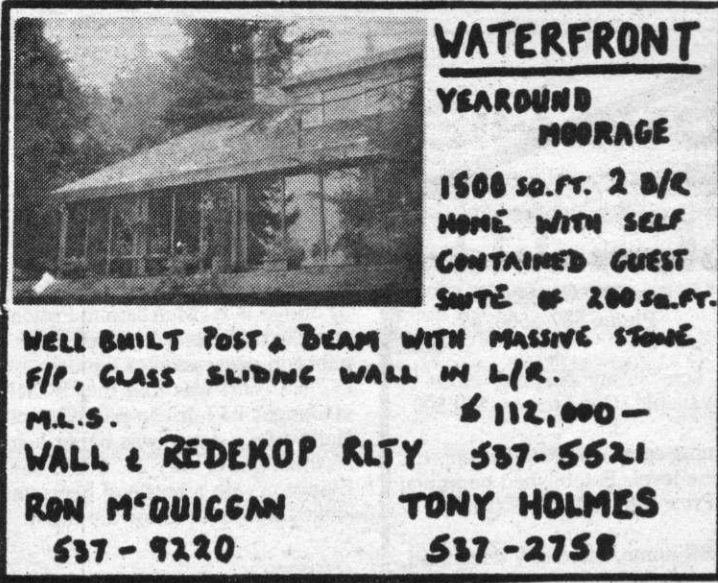 WATERFRONT
YEAROUND
MOORAGE
1500 SQ.FT. 2 B/R
HOME WITH SELF
CONTAINED GUEST
SUITE OF 200 SQ.FT.
WELL BUILT POST & BEAM WITH MASSIVE STONE
F/P, GLASS SLIDING WALL IN L/R.
M.L.S. $112,000—
WALL & REDEKOP RLTY 537-5521
RON McQUIGGAN TONY HOLMES
537-9220 537-2758